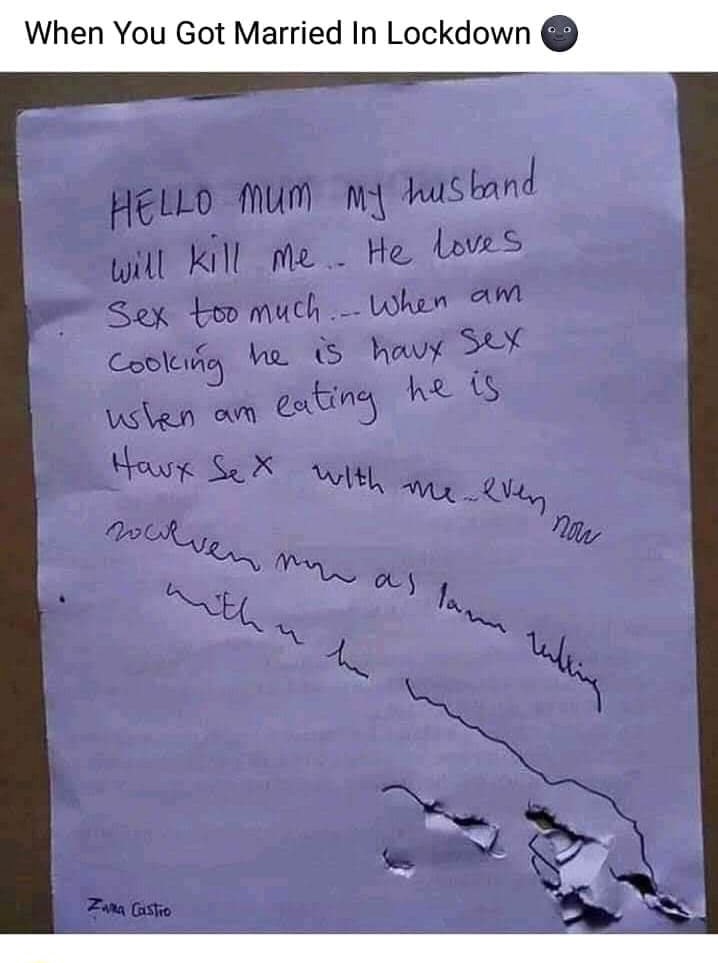 When You Got Married In Lockdown 🌚
HELLO mum My husband
will kill me.. He loves
Sex too much... When am
Cooking he is havx Sex
when am eating he is
Havx Sex with me even now
even now as I am talking
with u he
Zama Castro